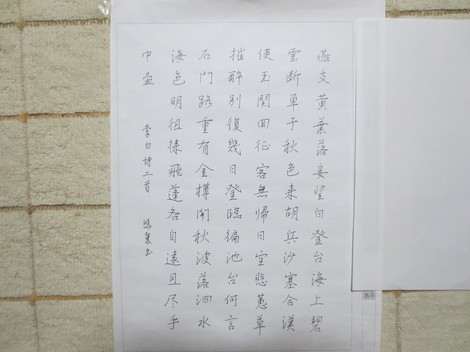 燕支黄葉落妾望白登台海上碧
雲断单于秋色来胡兵沙塞合漢
使玉関回征客無歸日空悲蕙草
摧醉別復幾日登臨徧池台何言
石門路重有金樽開秋波落泗水
海色明徂徠飛蓬各自遠且尽手
中盃 李白詩二首